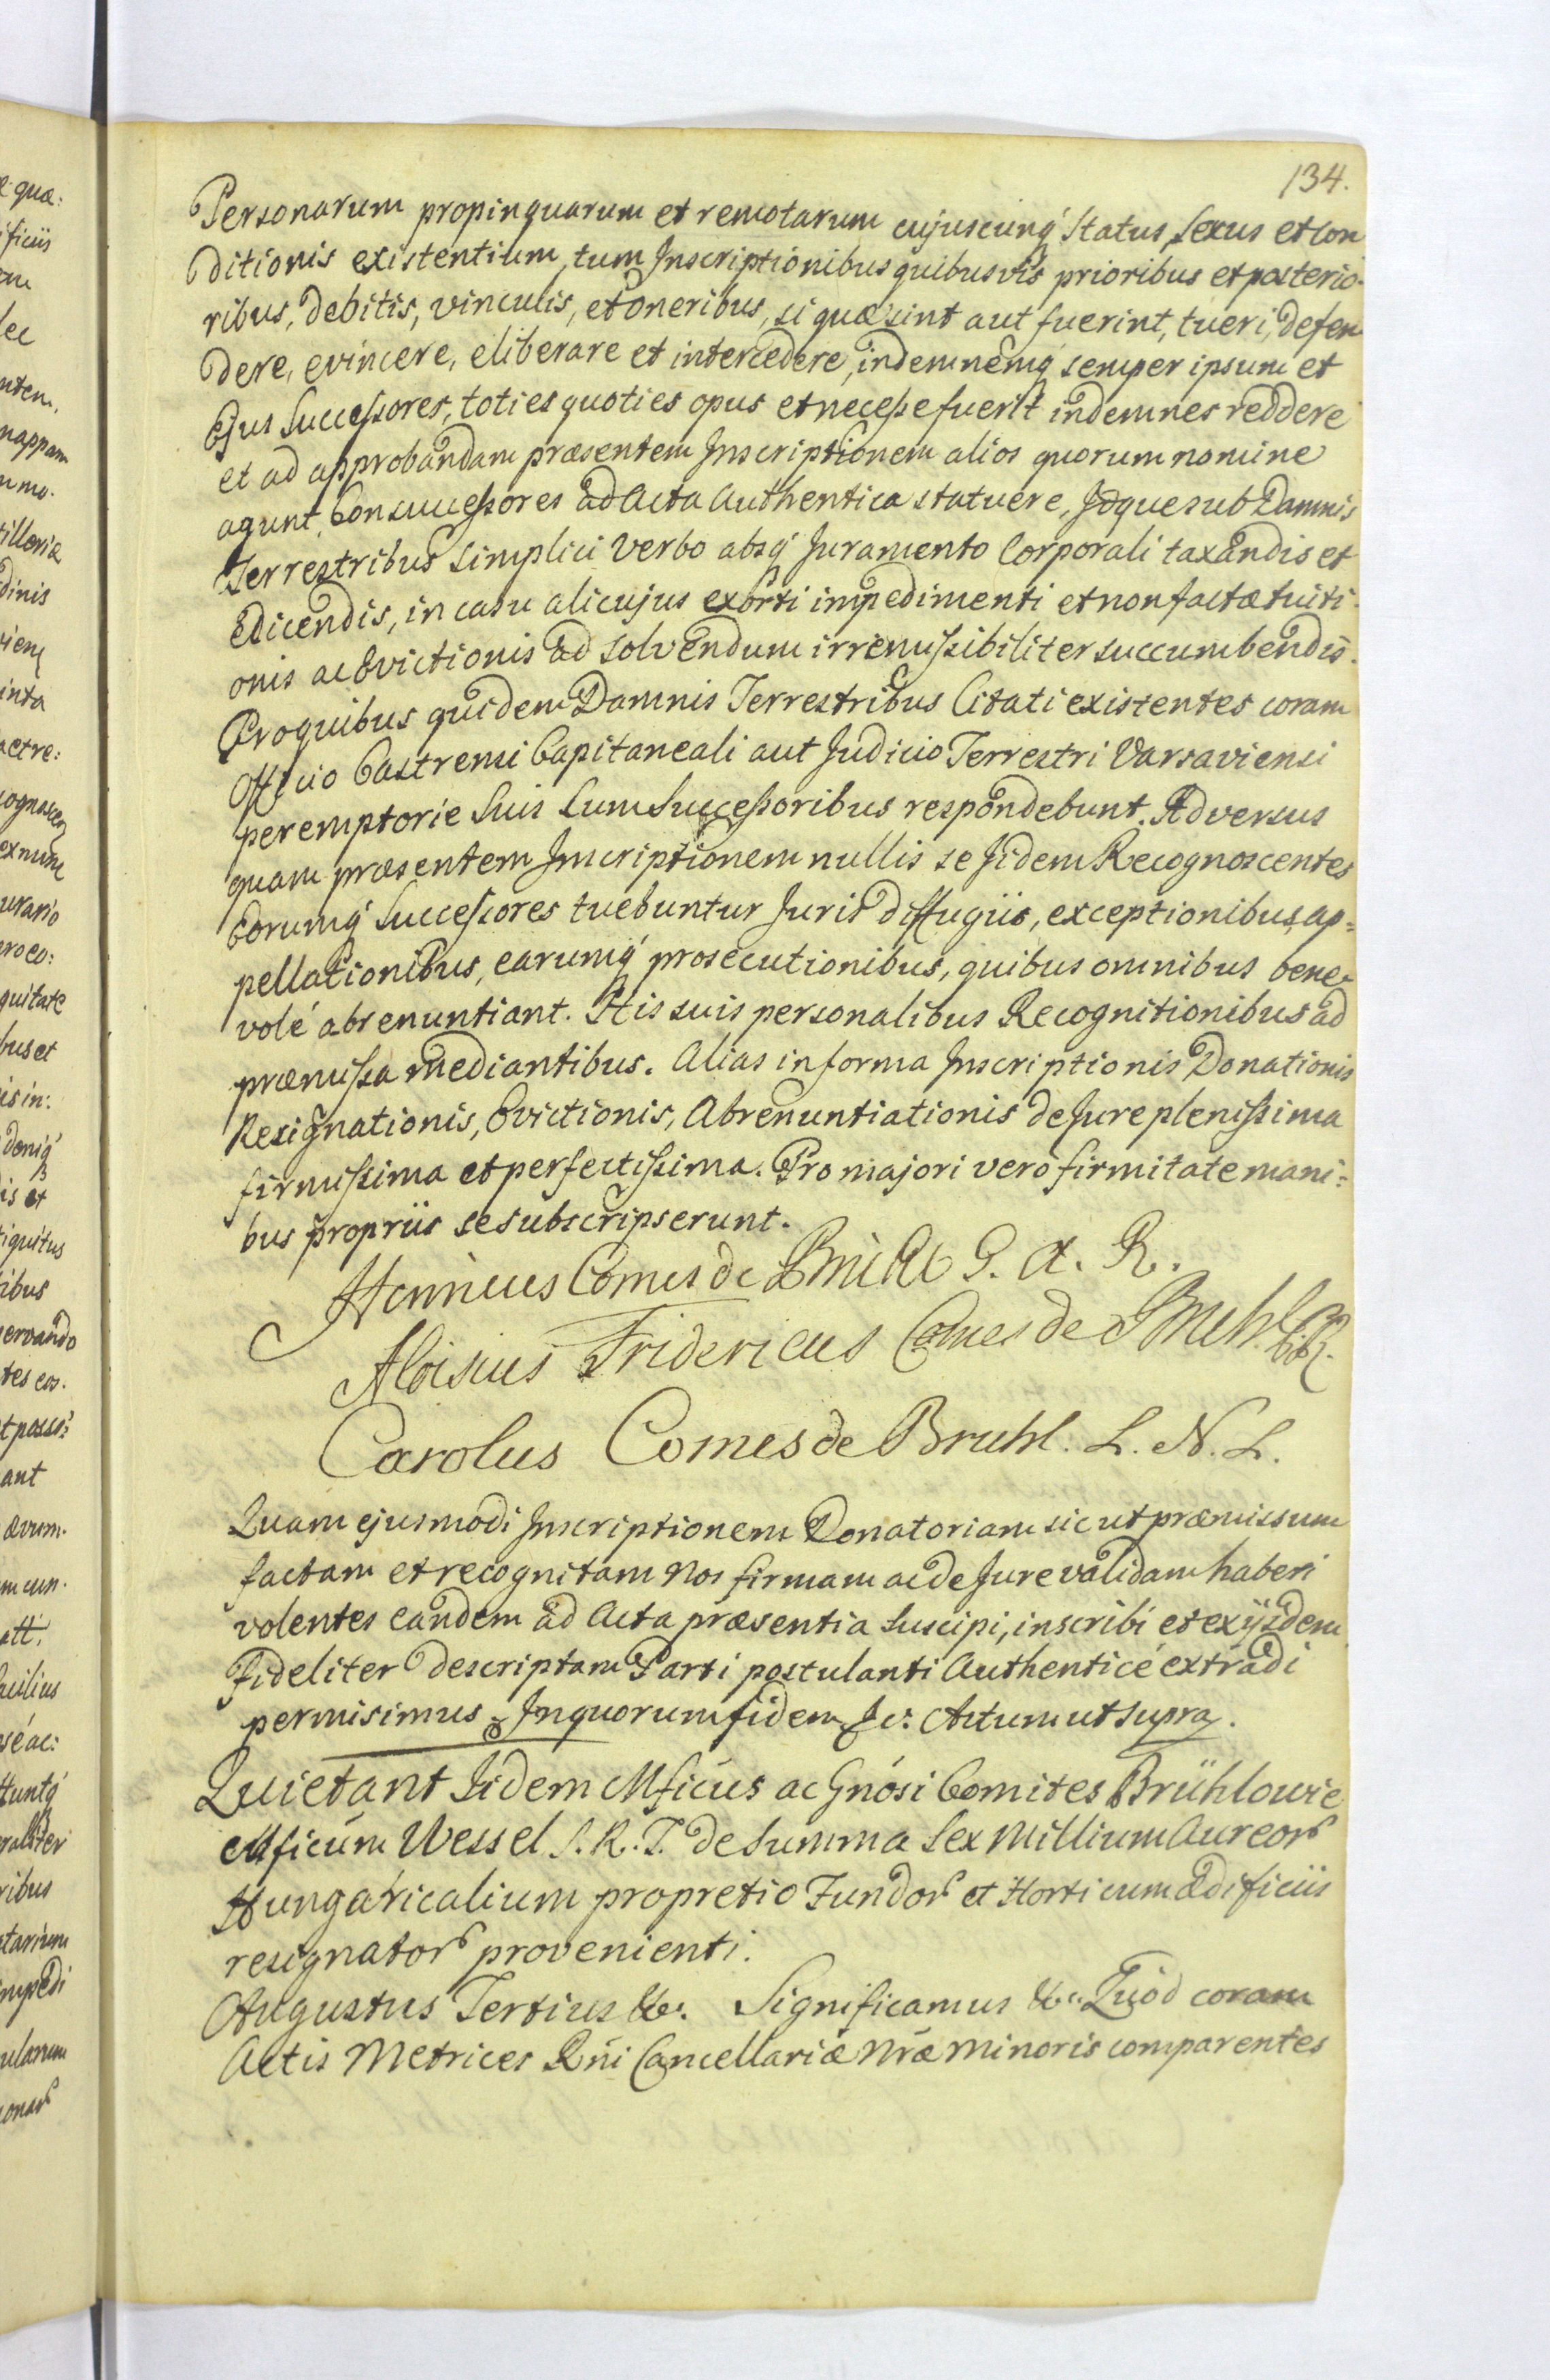 134.
Personarum propinquarum et remotarum cujuscunq́ Status, Sexus et Con
ditionis existentium, tum Inscriptionibus quibusvis prioribus et posterio-
ribus, debitis, vinculis, et oneribus, si quæ sint aut fuerint, tueri, defen
dere, evincere, eliberare et intercedere, indemnemq́ semper ipsum et
Ejus Successores, toties quoties opus et necesse fuerit indemnes reddere
et ad approbandam præsentem Inscriptionem alios quorum nomine
agunt, Consuccessores ad Acta Authentica statuere, Idque sub Damnis
Terrestribus simplici Verbo absq́ Juramento Corporali taxandis et
edicendis, in casu alicujus exorti impedimenti et non factæ tuiti-
onis ac Evictionis ad solvendum irremissibiliter succumbendis.
Pro quibus quidem Damnis Terrestribus Citati existentes coram
Officio Castrensi Capitaneali aut Judicio Terrestri Varsaviensi
peremptorie Suis Cum Successoribus respondebunt. Adversus
quam præsentem Inscriptionem nullis se Iidem Recognoscentes
Eorumq́ Successores tuebuntur Juris diffugiis, exceptionibus, ap=
pellationibus, earumq́ prosecutionibus, quibus omnibus bene-
volé abrenuntiant. His suis personalibus Recognitionibus ad
præmissa mediantibus. Alias in forma Inscriptionis Donationis
Resignationis, Evictionis, Abrenuntiationis de Jure plenissima
firmissima et perfectissima. Pro majori vero firmitate mani=
bus propriis se subscripserunt.
Henricus Comes de Brühl G. A. R.
Aloisius Fridericus Comes de Bruhl
Carolus Comes de Bruhl. L. N. L.
Quam ejusmodi Inscriptionem Donatoriam sic ut præmissum
factam et recognitam Nos firmam ac de Jure validam haberi
volentes eandem ad Acta præsentia suscipi, inscribi et ex ijsdem
fideliter descriptam Parti postulanti Authenticé extradi
permisimus. In quorum fidem &c: Actum ut supra.
Quietant Iidem Mficus ac Gnosi Comites Brühlowie
Mficum Wessel S. R. T. de Summa Sex Millium Aureor
Hungaricalium pro pretio Fundor et Horti cum ædificiis
resignator provenienti.
Augustus Tertius &c. Significamus &c. Quod coram
Actis Metrices Rñi Cancellariæ Nræ Minoris comparentes